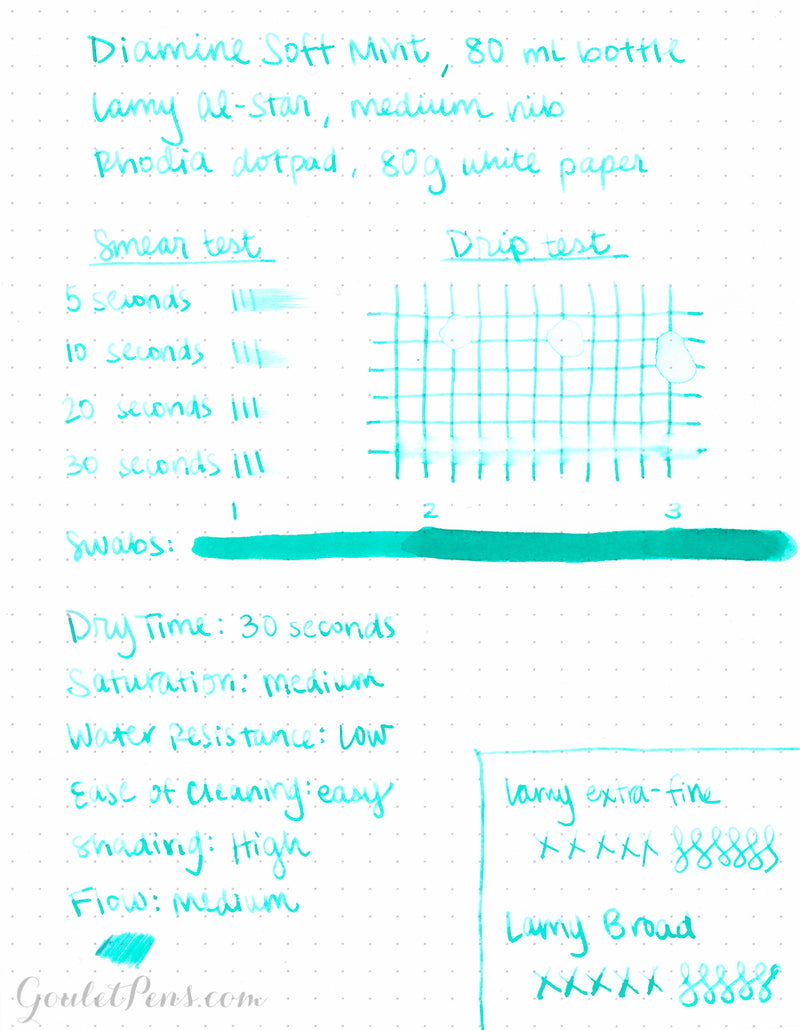 Diamine Soft Mint, 80 ml bottle
Lamy Al-Star, medium nib
Rhodia dotpad, 80g white paper
Smear test
5 seconds
10 seconds
20 seconds
30 seconds
Drip test
1 2 3
Swabs:
Dry Time: 30 seconds
Saturation: medium
Water Resistance: Low
Ease of Cleaning: easy
Shading: High
Flow: Medium
Lamy extra-fine
x x x x x
Lamy Broad
x x x x x
GouletPens.com